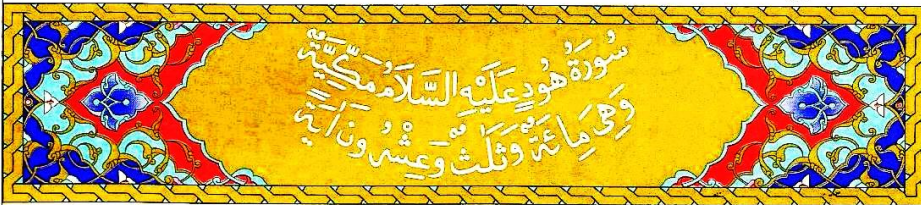 سُورَةُ هُودٍ عَلَيْهِ السَّلَامُ مَكِّيَّةٌ
وَهِىَ مِائَةٌ وَثَلَٰثٌ وَعِشْرُونَ اٰيَةً